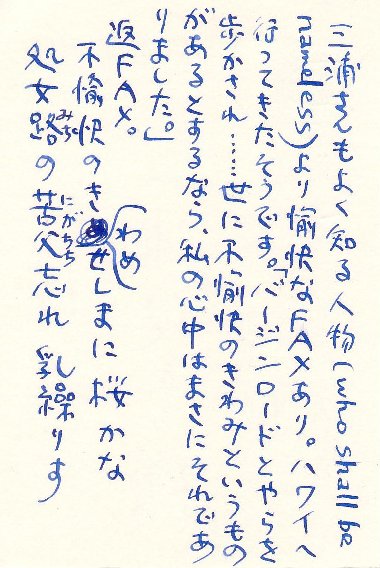 三浦さんもよく知る人物(who shall be
nameless)より愉快なFAXあり。ハワイへ
行ってきたそうです。「バージンロードとやらを
歩かされ……世に不愉快のきわみというもの
があるとするなら、私の心中はまさにそれであ
りました。」
返FAX。
不愉快のき(わめ)せしまに桜かな
処女路の苦父忘れ乳繰りす
みち
にがちち
し